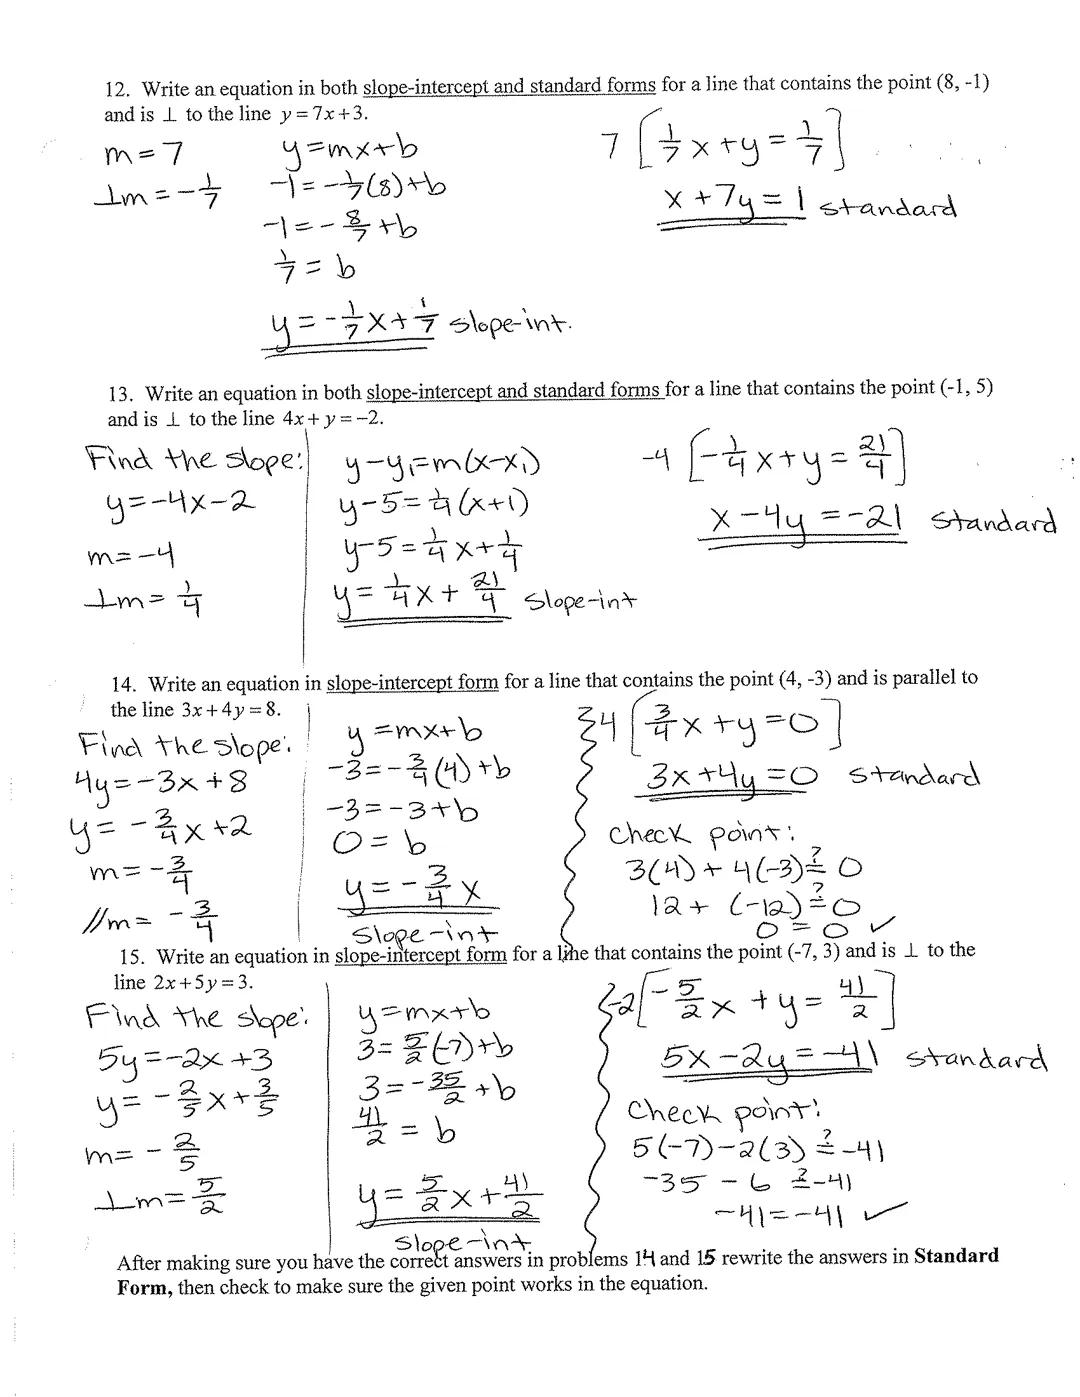 12. Write an equation in both slope-intercept and standard forms for a line that contains the point (8, -1)
and is ⊥ to the line y = 7x+3.
m = 7
⊥m = -1/7
y=mx+b
-1 = -1/7(8)+b
-1 = -8/7+b
1/7 = b
y = -1/7x+1/7 slope-int.
7[1/7x+y=1/7]
x+7y=1 standard
13. Write an equation in both slope-intercept and standard forms for a line that contains the point (-1, 5)
and is ⊥ to the line 4x+y=-2.
Find the slope:
y=-4x-2
m=-4
⊥m=1/4
y-y₁=m(x-x₁)
y-5=1/4(x+1)
y-5=1/4x+1/4
y=1/4x+21/4 slope-int
-4[-1/4x+y=21/4]
x-4y=-21 standard
14. Write an equation in slope-intercept form for a line that contains the point (4, -3) and is parallel to
the line 3x+4y=8.
Find the slope:
4y=-3x+8
y=-3/4x+2
m=-3/4
//m=-3/4
y=mx+b
-3=-3/4(4)+b
-3=-3+b
0=b
y=-3/4x
slope-int
4[3/4x+y=0]
3x+4y=0 standard
check point:
3(4)+4(-3)≟0
12+(-12)≟0
0=0 ✓
15. Write an equation in slope-intercept form for a line that contains the point (-7, 3) and is ⊥ to the
line 2x+5y=3.
Find the slope:
5y=-2x+3
y=-2/5x+3/5
m=-2/5
⊥m=5/2
y=mx+b
3=5/2(-7)+b
3=-35/2+b
41/2=b
y=5/2x+41/2
slope-int.
-2[-5/2x+y=41/2]
5x-2y=-41 standard
check point:
5(-7)-2(3)≟-41
-35-6≟-41
-41=-41 ✓
After making sure you have the correct answers in problems 14 and 15 rewrite the answers in Standard
Form, then check to make sure the given point works in the equation.